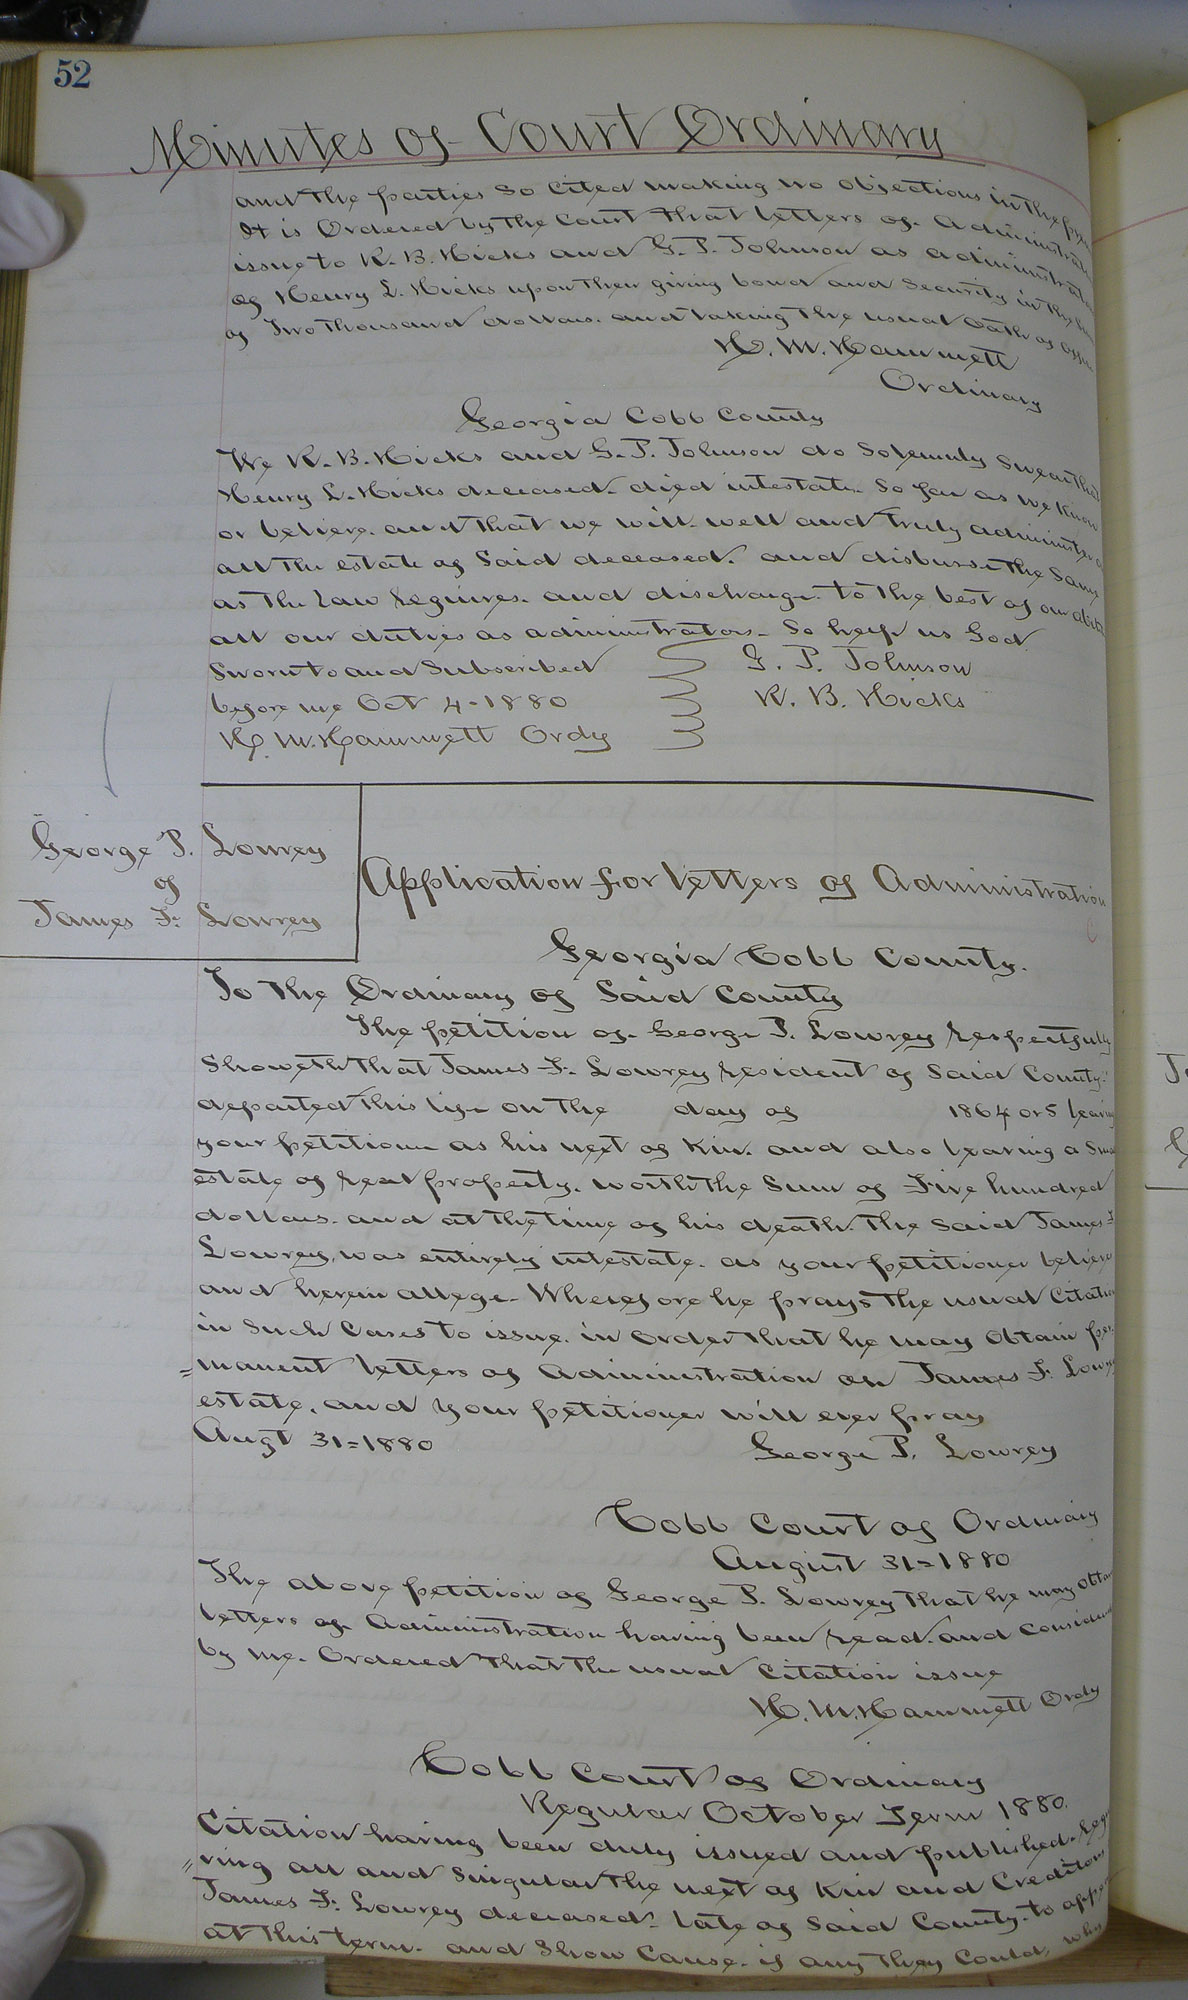 52
Minutes of Court Ordinary
and the parties so cited making no objections in the
It is Ordered by the Court that letters of Administration
issue to R. B. Hicks and G. P. Johnson as administrators
of Henry L. Hicks upon their giving bond and Security in the Sum
of Two thousand dollars. and taking the usual Oath of Office
H. M. Hammett
Ordinary
Georgia Cobb County
We R. B. Hicks and G. P. Johnson do Solemnly Swear that
Henry L. Hicks deceased. died intestate. So far as we Know
or believe. and that we will well and truly administer
all the estate of Said deceased. and disburse the Same
as the law requires. and discharge to the best of our
all our duties as administrators. So help us God
Sworn to and Subscribed
G. P. Johnson
before me Oct 4-1880
R. B. Hicks
H. M. Hammett Ordy
George P. Lowrey
of
James F. Lowrey
Application for letters of Administration
Georgia Cobb County.
To the Ordinary of Said County
The petition of George P. Lowrey respectfully
Showeth that James F. Lowrey resident of Said County.
departed this life on the day of 1864 or 5 leaving
your petitioner as his next of Kin. and also leaving a
estate of real property. worth the Sum of Five hundred
dollars. and at the time of his death. the Said James F
Lowrey, was entirely intestate. as your petitioner believes
and herein allege. Wherefore he prays the usual Citation
in Such Cases to issue. in order that he may Obtain per
=manent letters of Administration on James F. Lowrey
estate, and your petitioner will ever pray
Augt 31=1880
George P. Lowrey
Cobb Court of Ordinary
August 31=1880
The above petition of George P. Lowrey that he may Obtain
letters of Administration having been read. and Considered
by me. Ordered that the usual Citation issue
H. M. Hammett Ordy
Cobb Court of Ordinary
Regular October Term 1880.
Citation having been duly issued and published.
=ring all and Singular the next of Kin and Creditors
James F. Lowrey deceased. late of Said County. to appear
at this term. and Show Cause. if any they Could, why